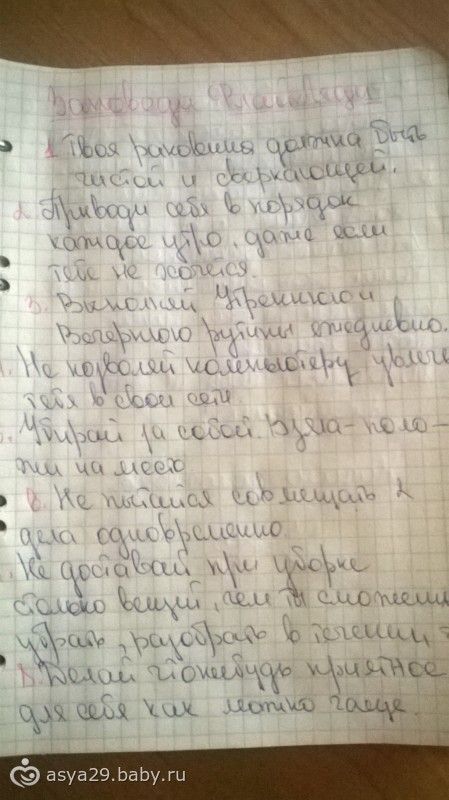 Заповеди Флай Леди
1. Твоя раковина должна быть
чистой и сверкающей.
2. Приводи себя в порядок
каждое утро, даже если
тебе не хочется.
3. Выполняй Утреннюю и
Вечернюю рутины ежедневно.
Не позволяй компьютеру увлечь
тебя в свои сети.
Убирай за собой. Взяла - поло-
жи на место
6. Не пытайся совмещать 2
дела одновременно.
Не доставай при уборке
столько вещей, чем ты сможешь
убрать, разобрать в течении
8. Делай что нибудь приятное
для себя как можно чаще.
asya29.baby.ru